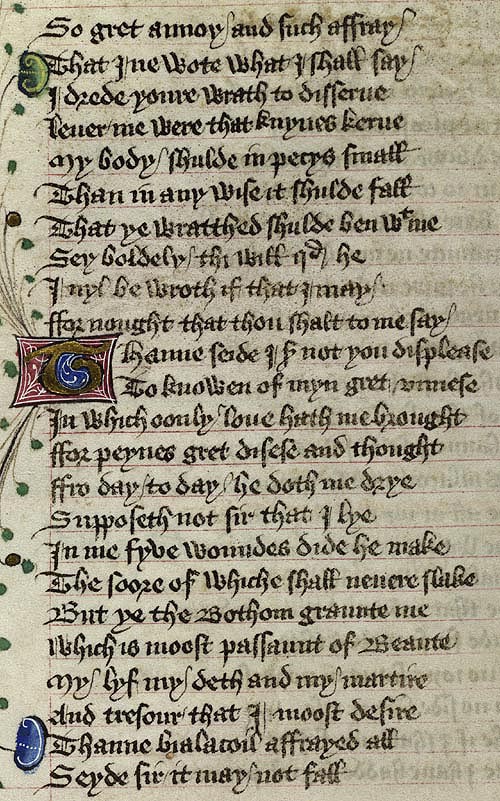 So gret annoy / and such affray /
That I ne wote what I shall say /
I drede youre wrath to disserue
leuer me were that knyues kerue
My body / shulde in pecys small
Than in any wise it shulde fall
That ye wratthed shulde ben wt me
Sey boldely / thi will qd he
I nyl be wroth if that I may /
ffor nought that thou shalt to me say /
Thanne seide I sir not you displease
To knowen of myn gret / vnnese
In which oonly / loue hath me brought
ffor peynes gret disese and thought
ffro day / to day / he doth me drye
Supposeth not sir that I lye
In me fyve woundes dide he make
The soore of whiche shall neuere slake
But ye the Bothom graunte me
Which is moost passaunt of Beaute
My / lyf my / deth and my / martire
And tresour that I moost desire
Thanne bialacoil affrayed all
Seyde sir it may / not fall